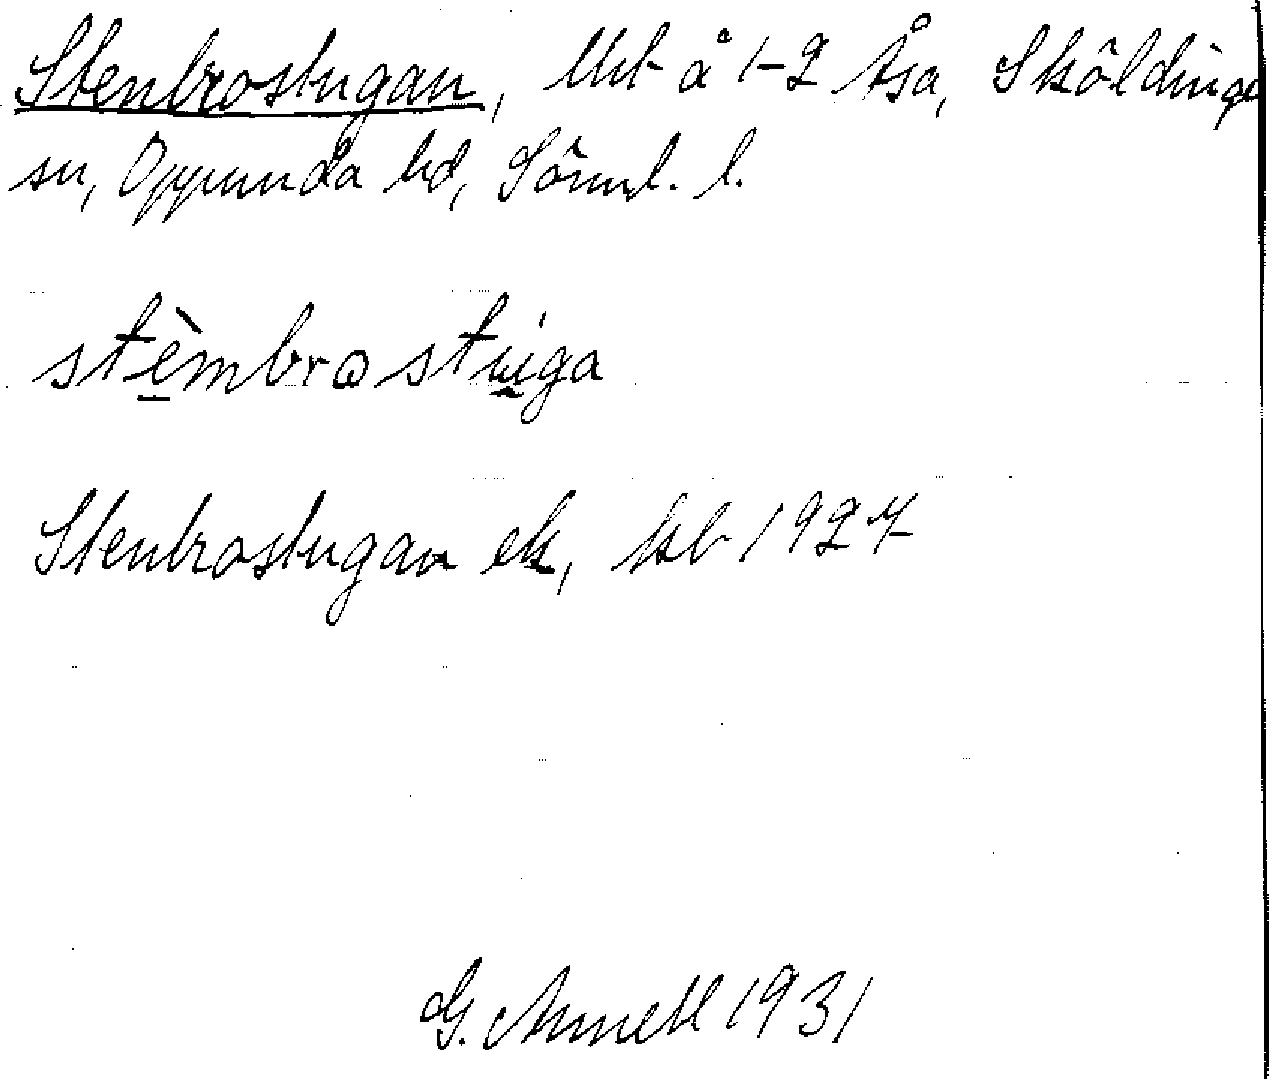 Stenbrostugan, Utb å 1-2 Åsa, Sköldinge
sn, Oppunda hd, Sörml. l.
stèmbrostuga
Stenbrostugan ek, kb 1927
G. Arnell 1931